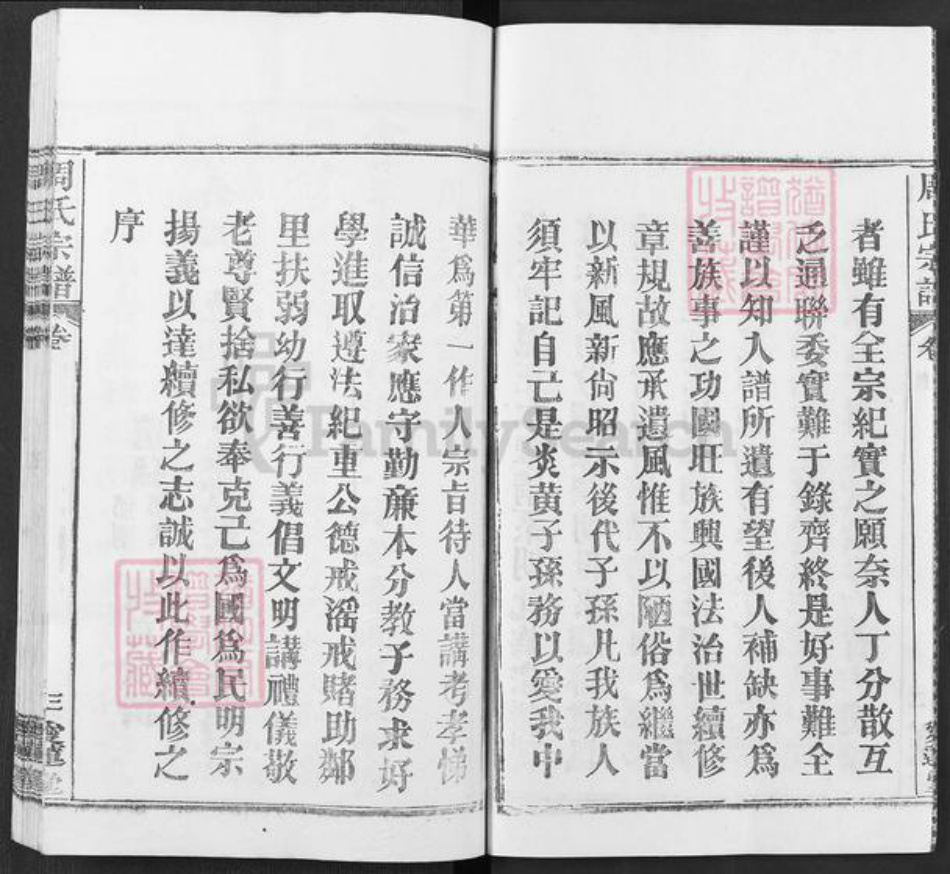 周氏宗譜 卷
者雖有全宗紀實之願奈人丁分散互
乏通聯委實難于錄齊終是好事難全
謹以知入譜所遺有望後人補缺亦為
善族事之功國旺族興國法治世續修
章規故應承遺風惟不以陋俗為繼當
以新風新尚昭示後代子孫凡我族人
須牢記自己是炎黃子孫務以愛我中
華為第一作人宗旨待人當講考孝悌
誠信治家應守勤廉本分教子務求好
學進取遵法紀重公德戒淫戒賭助鄰
里扶弱幼行善行義倡文明講禮儀敬
老尊賢捨私欲奉克己為國為民明宗
揚義以達續修之志誠以此作續修之
序
周氏宗譜 卷
三
FamilySearch